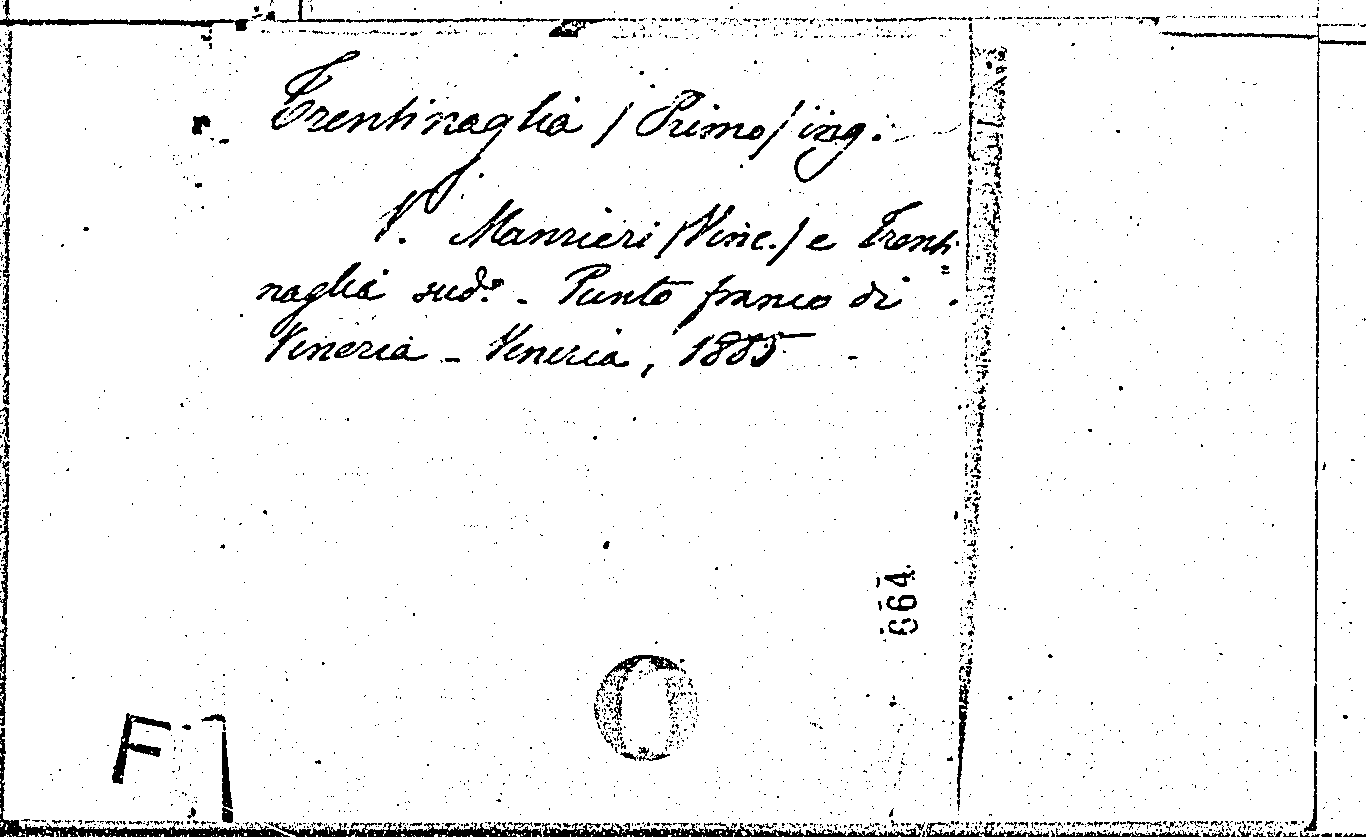 Trentinaglia / Primo / ing.
V. Manzieri / Vinc. / e Trenti
naglia sudº - Punto franco di
Venezia - Venezia, 1885
664
F